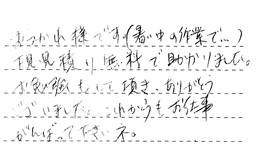 おつかれ様です(暑い中の作業で…)
下見見積り無料で助かりました。
お勉強もして頂き、ありがとう
ございました。これからもお仕事
がんばって下さいネ。